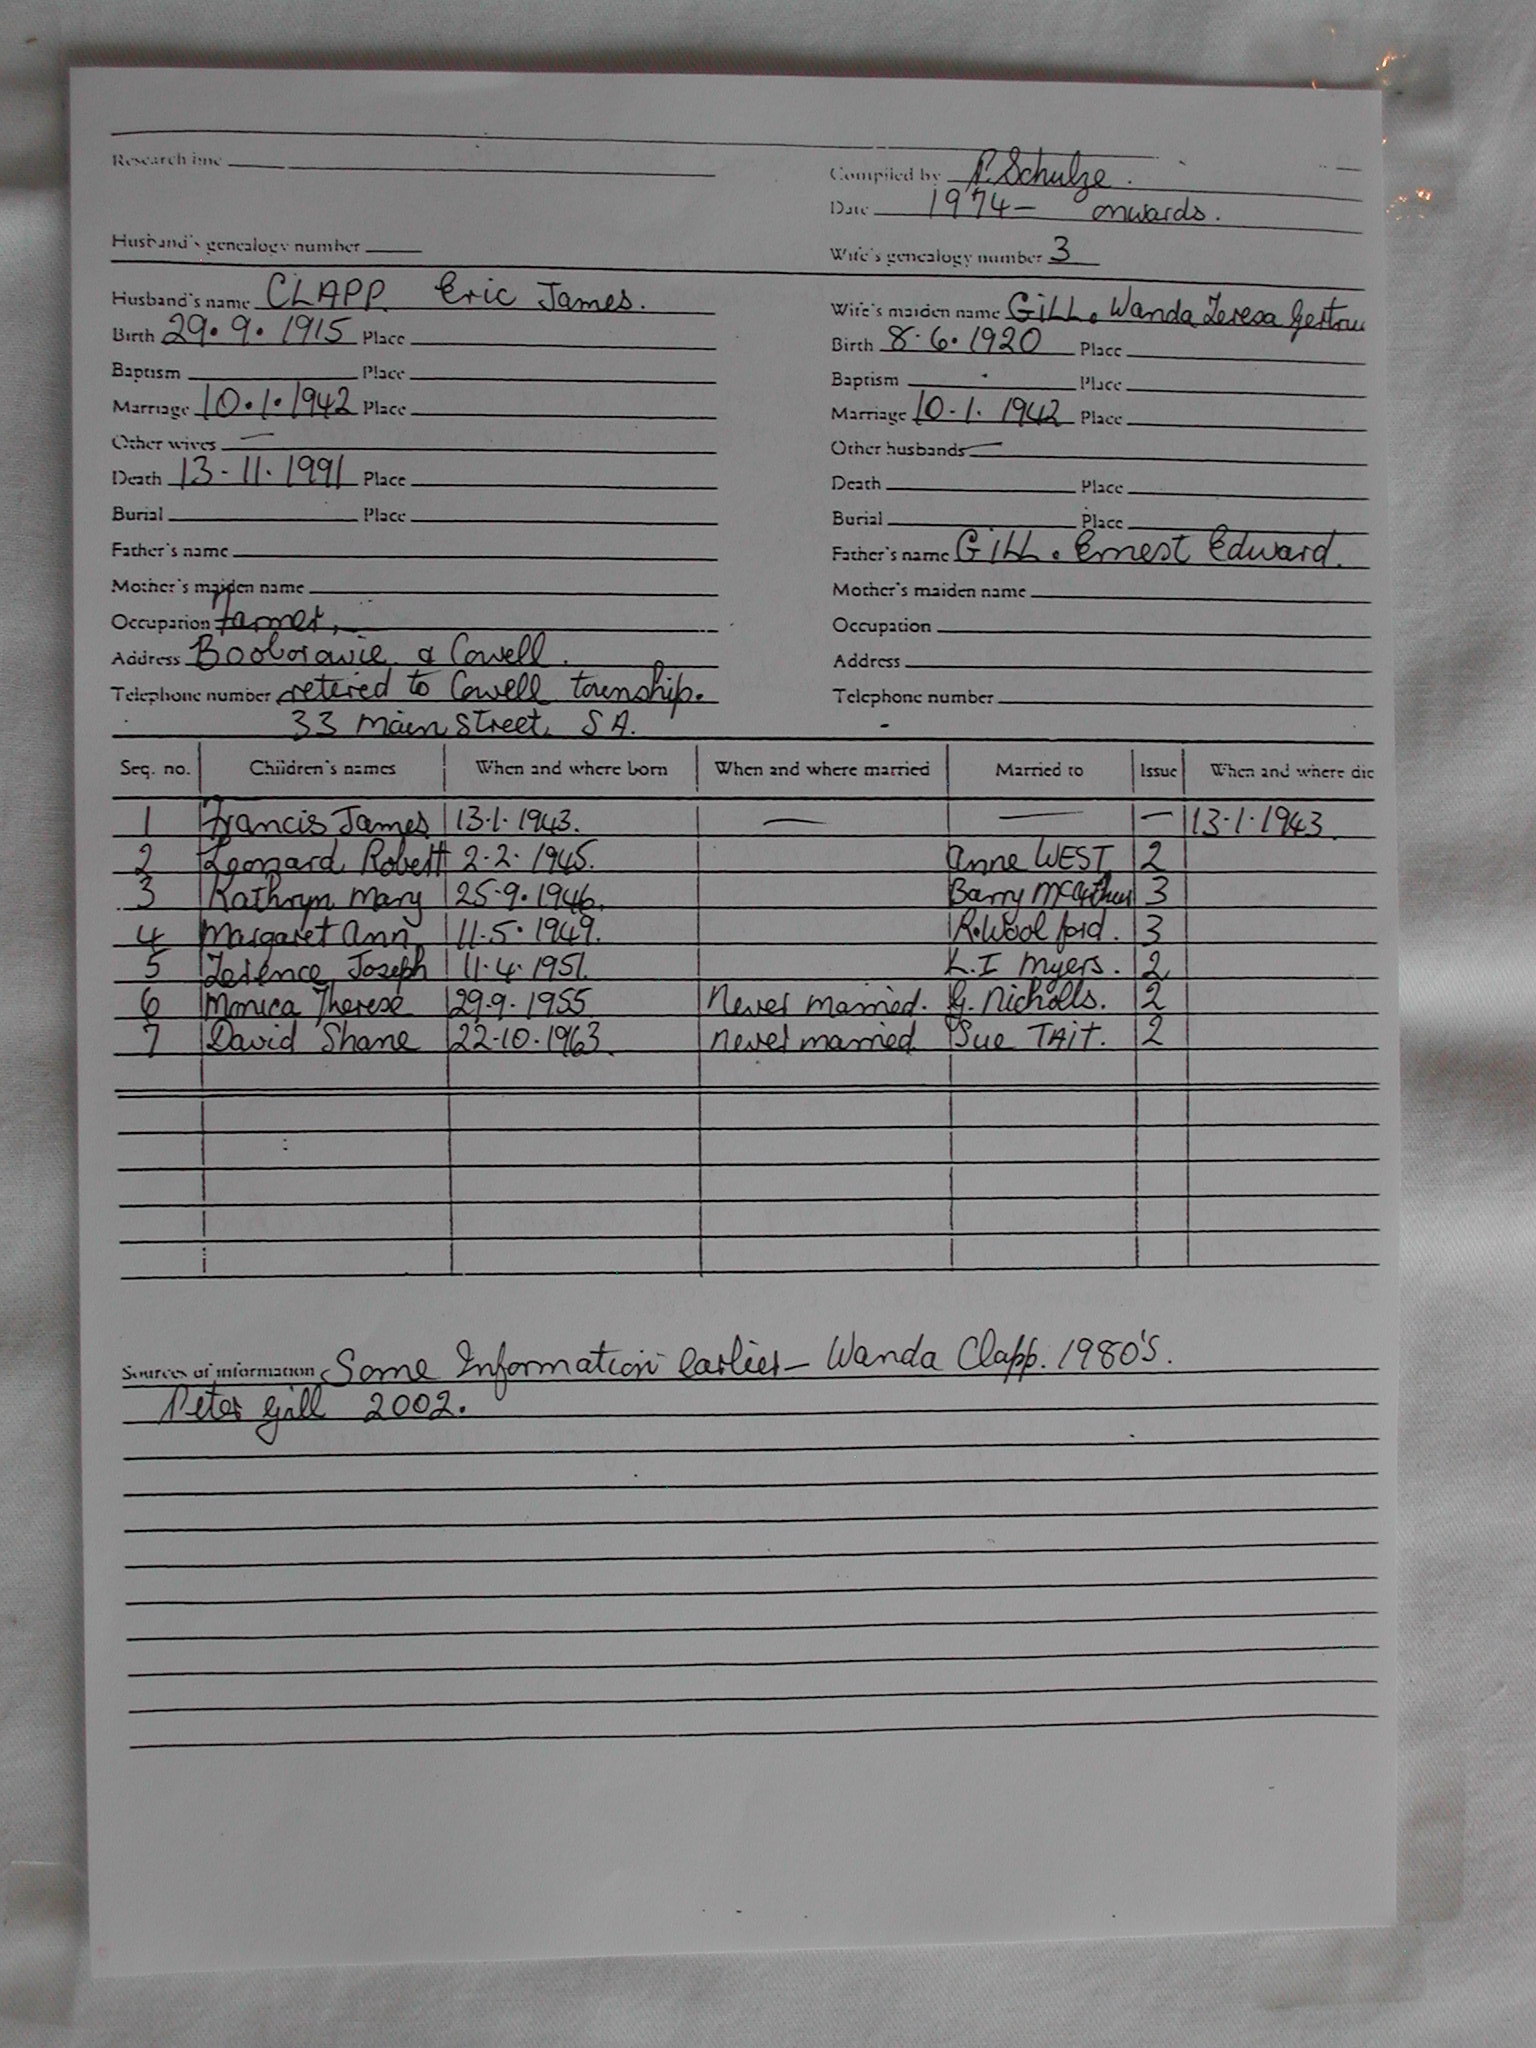 Research line
Compiled by P. Schulze.
Date 1974 - onwards.
Husband's genealogy number
Wife's genealogy number 3
Husband's name CLAPP Eric James.
Wife's maiden name GILL. Wanda Teresa
Birth 29.9.1915 Place
Birth 8.6.1920 Place
Baptism Place
Baptism Place
Marriage 10.1.1942 Place
Marriage 10.1.1942 Place
Other wives —
Other husbands —
Death 13-11.1991 Place
Death Place
Burial Place
Burial Place
Father's name
Father's name GILL. Ernest Edward.
Mother's maiden name
Mother's maiden name
Occupation Farmer,
Occupation
Address Booborowie & Cowell.
Address
Telephone number retired to Cowell township.
Telephone number
33 Main Street, SA.
Seq. no. Children's names When and where born When and where married Married to Issue When and where die
1 Francis James 13.1.1943. — — — 13.1.1943.
2 Leonard Robert 2.2.1945. Anne WEST 2
3 Kathryn Mary 25.9.1946. Barry McArthur 3
4 Margaret Ann 11.5.1949. R. Woolford. 3
5 Terence Joseph 11.4.1951. K.I Myers. 2
6 Monica Therese 29.9.1955 Never married. G. Nicholls. 2
7 David Shane 22.10.1963. never married Sue TAIT. 2
Sources of information Some Information earlier - Wanda Clapp. 1980'S.
Peter Gill 2002.